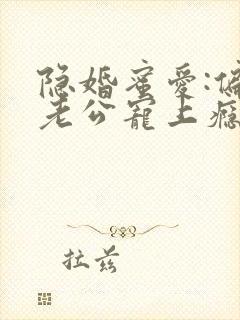 隐婚蜜爱:偏
老公宠上瘾
拉兹